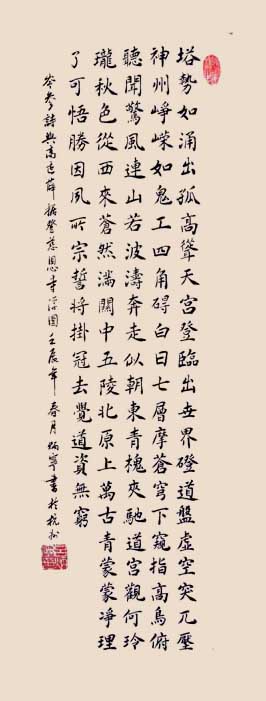 塔勢如涌出孤高聳天宮登臨出世界磴道盤虛空突兀壓
神州崢嶸如鬼工四角碍白日七層摩蒼穹下窺指高鳥俯
聽聞驚風連山若波濤奔走似朝東青槐夾馳道宮觀何玲
瓏秋色從西來蒼然滿關中五陵北原上萬古青蒙蒙淨理
了可悟勝因夙所宗誓將掛冠去覺道資無窮
岑參詩與高适薛據登慈恩寺浮圖壬辰年春月炳寧書於杭州